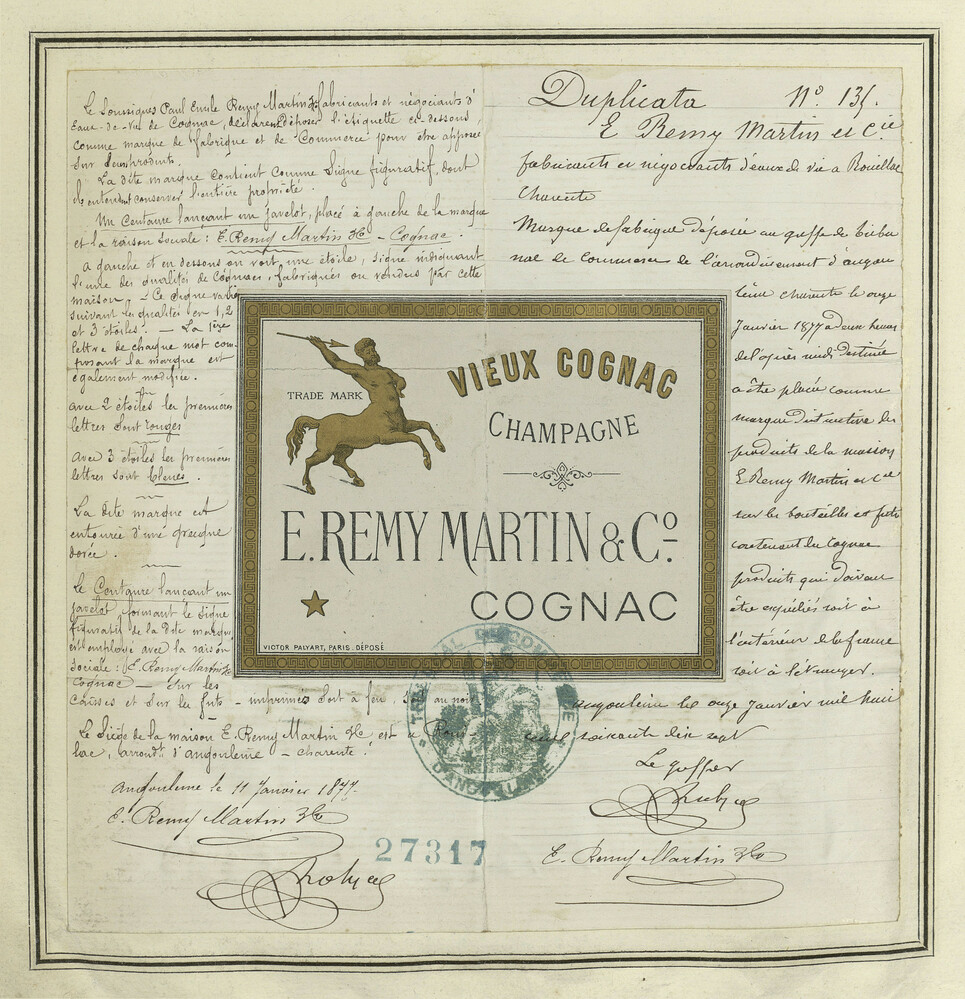 Le Soussignés Paul Emile Remy Martin & Co fabricants et négociants d'
Eaux-de-vie de Cognac, déclarent déposer l'étiquette ci-dessous
comme marque de fabrique et de Commerce pour être apposée
sur leurs produits.
La dite marque contient comme Signe figuratif, dont
ils entendent conserver l'entière propriété.
Un Centaure lançant un javelot, placé à gauche de la marque
et la raison sociale : E. Remy Martin & Co - Cognac.
A gauche et en dessous on voit, une étoile, signe indiquant
l'une des qualités de Cognacs, fabriqués ou vendus par cette
maison. - Ce signe varie
suivant les qualités en 1, 2
et 3 étoiles. - La 1ère
lettre de chaque mot com-
posant la marque est
également modifiée.
avec 2 étoiles les premières
lettres sont rouges
Avec 3 étoiles les premières
lettres sont bleues.
La dite marque est
entourée d'une grecque
dorée.
Le Centaure lançant un
javelot, formant le signe
figuratif de la dite marque
est employé avec la raison
sociale : E. Remy Martin & Co
Cognac - Sur les
Caisses et sur les futs - imprimés soit à feu, soit au noir
Le Siège de la maison E. Remy Martin & Co est à Rouil-
lac, arrondt d'Angoulême - charente.
Angoulême le 11 Janvier 1877.
E. Remy Martin & Co
Duplicata No. 135.
E Remy Martin et Cie
fabricants et négociants d'eaux de vie a Rouillac
Charente
Marque de fabrique déposée au greffe du tribu
nal de Commerce de l'arrondissement d'angou
lême charente le onze
Janvier 1877 a deux heures
de l'après midi destinée
a être placée comme
marque distinctive des
produits de la maison
E Remy Martin et Cie
sur les bouteilles et futs
contenant du Cognac
produits qui doivent
être expédiés soit à
l'intérieur de la france
soit à l'étranger.
angoulême le onze janvier mil huit
cent soixante dix sept
Le greffier
E. Remy Martin & Co
TRADE MARK
VIEUX COGNAC
CHAMPAGNE
E. REMY MARTIN & Co.
COGNAC
VICTOR PALYART, PARIS. DÉPOSÉ
TRIBUNAL DE COMMERCE
D'ANGOULÊME
27317